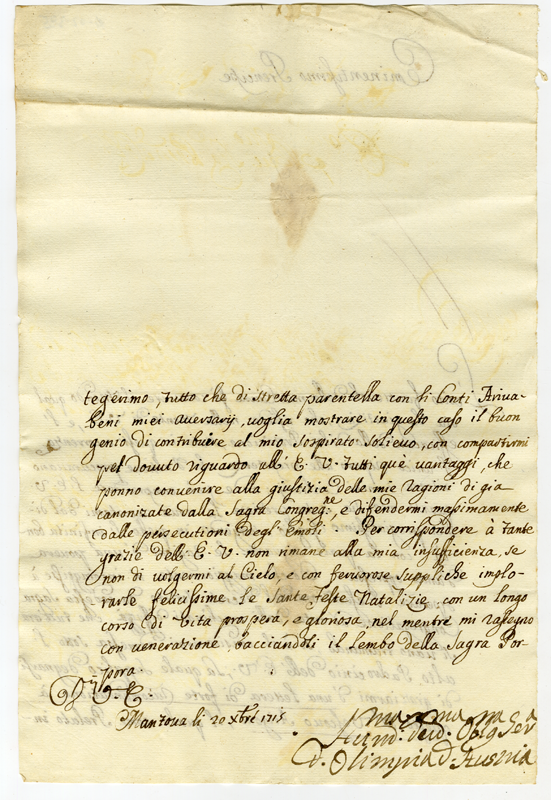 tegerimo, tutto che di stretta parentella con li Conti Ariva=
beni miei aversarij, voglia mostrare in questo caso il buon
genio di contribuere al mio sospirato solievo, con compartirmi
pel dovuto riguardo all' E. V. tutti que vantaggi, che
ponno convenire alla giustizia delle mie ragioni di già
canonizate dalla Sagra Congreg.ne, e difendermi massimamente
dalle persecutioni degl' Emoli. Per corrispondere à tante
grazie dell' E. V. non rimane alla mia insufficienza, se
non di volgermi al Cielo, e con fervorose suppliche implo=
rarle felicissime le Sante feste Natalizie con un longo
corso di vita prospera, e gloriosa, nel mentre mi rassegno
con venerazione, bacciandoli il lembo della Sagra Por=
pora
D. V. E.
Mantova li 20 Xbre
Hum.ma Dev.ma Oblig.ma Ser.a
D. Olimpia d.